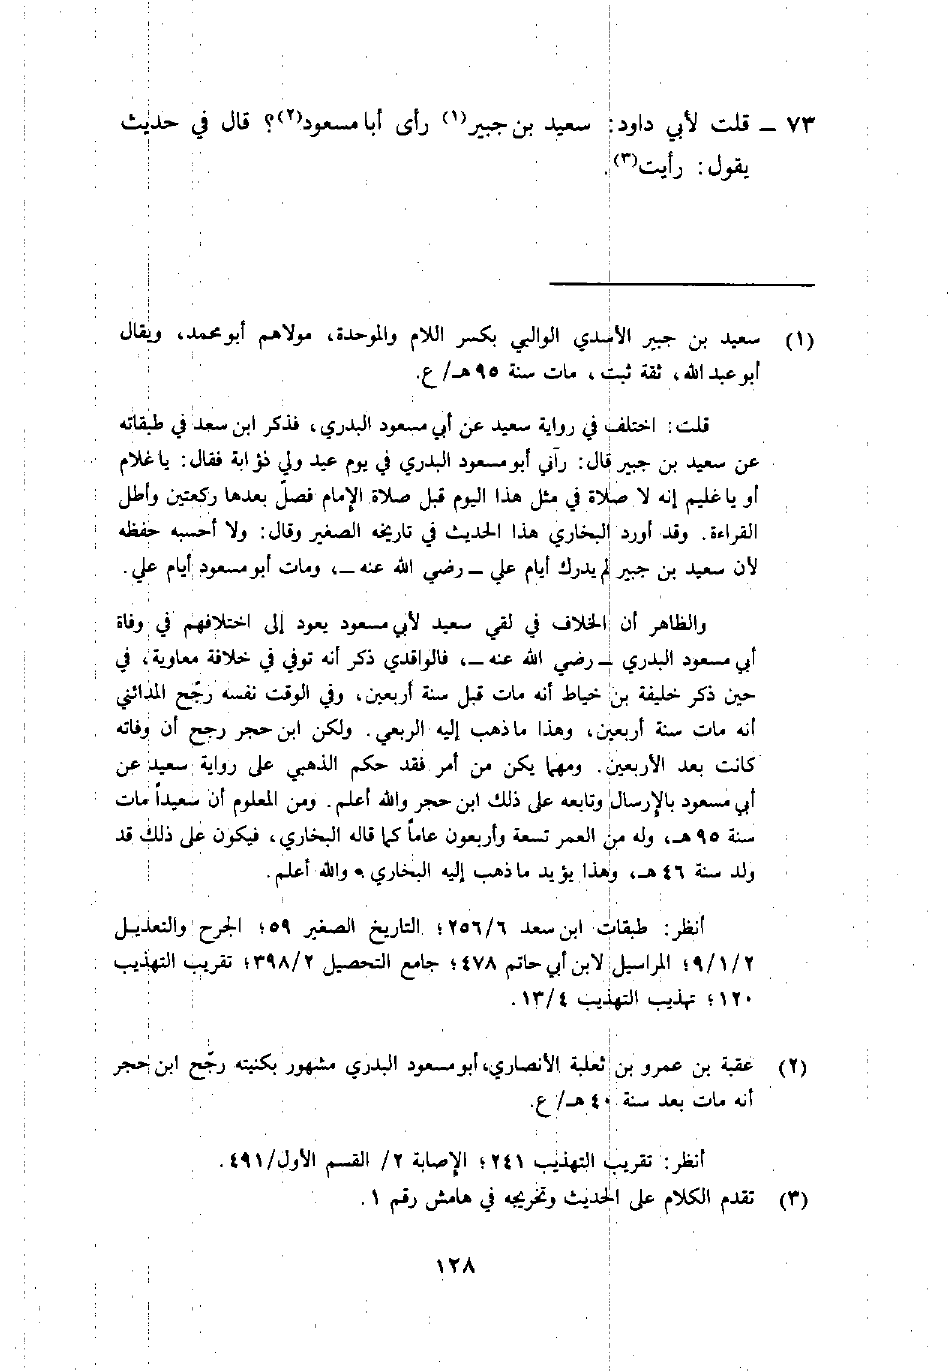 ٧٣ ــ قلت لأبي داود: سعيد بن جبير(١) رأى أبا مسعود(٢)؟ قال في حديث
يقول: رأيت(٣).
(١) سعيد بن جبير الأسدي الوالبي بكسر اللام والموحدة، مولاهم أبو محمد، ويقال
أبو عبد الله، ثقة ثبت، مات سنة ٩٥ هـ/ ع.
قلت: اختلف في رواية سعيد عن أبي مسعود البدري، فذكر ابن سعد في طبقاته
عن سعيد بن جبير قال: رآني أبو مسعود البدري في يوم عيد ولي ذؤابة فقال: يا غلام
أو يا غليم إنه لا صلاة في مثل هذا اليوم قبل صلاة الإمام فصلّ بعدها ركعتين وأطل
القراءة. وقد أورد البخاري هذا الحديث في تاريخه الصغير وقال: ولا أحسبه حفظه
لأن سعيد بن جبير لم يدرك أيام علي ــ رضي الله عنه ــ، ومات أبو مسعود أيام علي.
والظاهر أن الخلاف في لقي سعيد لأبي مسعود يعود إلى اختلافهم في وفاة
أبي مسعود البدري ــ رضي الله عنه ــ، فالواقدي ذكر أنه توفي في خلافة معاوية، في
حين ذكر خليفة بن خياط أنه مات قبل سنة أربعين، وفي الوقت نفسه رجّح المدائني
أنه مات سنة أربعين، وهذا ما ذهب إليه الربعي. ولكن ابن حجر رجح أن وفاته
كانت بعد الأربعين. ومهما يكن من أمر فقد حكم الذهبي على رواية سعيد عن
أبي مسعود بالإرسال وتابعه على ذلك ابن حجر والله أعلم. ومن المعلوم أن سعيداً مات
سنة ٩٥ هـ، وله من العمر تسعة وأربعون عاماً كما قاله البخاري، فيكون على ذلك قد
ولد سنة ٤٦ هـ، وهذا يؤيد ما ذهب إليه البخاري، والله أعلم.
أنظر: طبقات ابن سعد ٢٥٦/٦؛ التاريخ الصغير ٥٩؛ الجرح والتعديل
٩/١/٢؛ المراسيل لابن أبي حاتم ٤٧٨؛ جامع التحصيل ٣٩٨/٢؛ تقريب التهذيب
١٢٠؛ تهذيب التهذيب ١٣/٤.
(٢) عقبة بن عمرو بن ثعلبة الأنصاري، أبو مسعود البدري مشهور بكنيته رجّح ابن حجر
أنه مات بعد سنة ٤٠ هـ/ ع.
أنظر: تقريب التهذيب ٢٤١؛ الإصابة ٢/ القسم الأول/٤٩١.
(٣) تقدم الكلام على الحديث وتخريجه في هامش رقم ١.
١٢٨